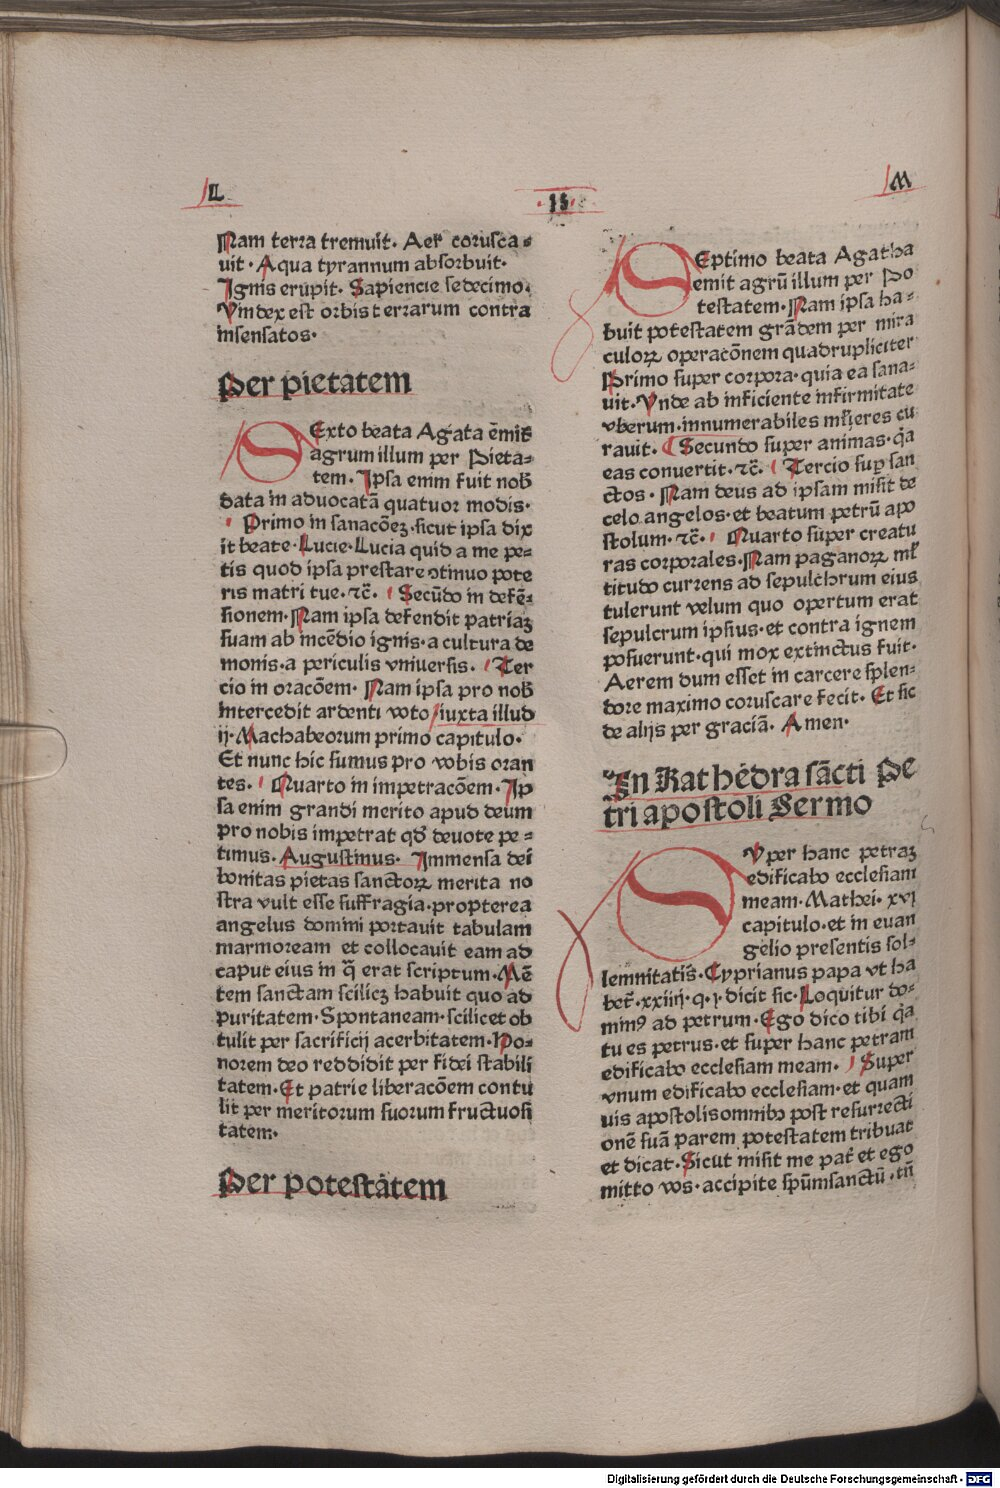 L
15
M
Nam terra tremuit. Aer corusca⸗
uit. Aqua tyrannum absorbuit.
Ignis erupit. Sapiencie sedecimo.
Vindex est orbis terrarum contra
insensatos.
Per pietatem
SExto beata Agata ēmit
agrum illum per Pieta⸗
tem. Ipsa enim fuit nob̄
data in aduocatā quatuor modis.
Primo in sanacōeꝫ. sicut ipsa dix
it beate. Lucie. Lucia quid a me pe⸗
tis quod ipsa prestare ɔtinuo pote
ris matri tue. ⁊c̄. Secūdo in defē⸗
sionem. Nam ipsa defendit patriaꝫ
suam ab incēdio ignis. a cultura de
monis. a periculis vniuersis. Ter
cio in oracōem. Nam ipsa pro nob̄
intercedit ardenti voto iuxta illud
ij. Machabeorum primo capitulo.
Et nunc hic sumus pro vobis oran
tes. Quarto in impetracōem. Ip
sa enim grandi merito apud deum
pro nobis impetrat qd̄ deuote pe⸗
timus. Augustinus. Immensa dei
bonitas pietas sanctoꝝ merita no
stra vult esse suffragia. propterea
angelus domini portauit tabulam
marmoream et collocauit eam ad
caput eius in q̄ erat scriptum. Mē
tem sanctam scilicꝫ habuit quo ad
puritatem. Spontaneam. scilicet ob
tulit per sacrificij acerbitatem. Ho⸗
norem deo reddidit per fidei stabili
tatem. Et patrie liberacōem contu
lit per meritorum suorum fructuosi
tatem.
Per potestatem
SEptimo beata Agatha
emit agrū illum per Po
testatem. Nam ipsa ha⸗
buit potestatem grādem per mira
culoꝝ operacōnem quadrupliciter
Primo super corpora. quia ea sana⸗
uit. Vnde ab inficiente infirmitate
vberum. innumerabiles ml̄ieres cu
rauit. Secundo super animas. q̄a
eas conuertit. ⁊c̄. Tercio suꝑ san
ctos. Nam deus ad ipsam misit de
celo angelos. et beatum petrū apo
stolum. ⁊c̄. Quarto super creatu
ras corporales. Nam paganoꝝ ml̄
titudo currens ad sepulchrum eius
tulerunt velum quo opertum erat
sepulcrum ipsius. et contra ignem
posuerunt. qui mox extinctus fuit.
Aerem dum esset in carcere splen⸗
dore maximo coruscare fecit. Et sic
de alijs per graciā. Amen.
In Kathedra sācti Pe
tri apostoli Sermo
SVper hanc petraꝫ
edificabo ecclesiam
meam. Mathei. xvj
capitulo. et in euan
gelio presentis sol⸗
lemnitatis. Cyprianus papa vt ha
bet᷑. xxiiij. q. j. dicit sic. Loquitur do⸗
minꝰ ad petrum. Ego dico tibi q̄a
tu es petrus. et super hanc petram
edificabo ecclesiam meam. Super
vnum edificabo ecclesiam. et quam
uis apostolis omnibꝫ post resurrecti
onē suā parem potestatem tribuat
et dicat. Sicut misit me pat᷑ et ego
mitto vos. accipite spūmsanctū. tn̄
Digitalisierung gefördert durch die Deutsche Forschungsgemeinschaft - DFG